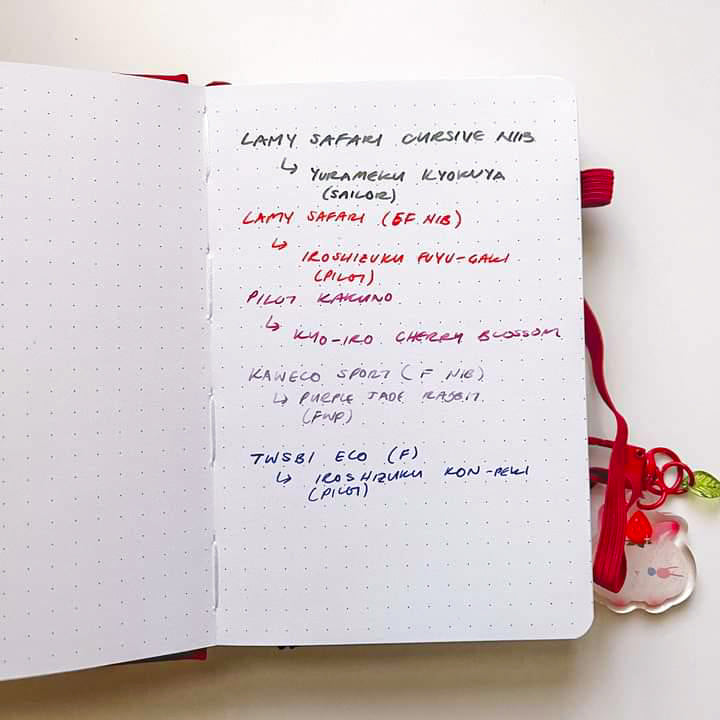 LAMY SAFARI CURSIVE NIB
↳ YURAMEKU KYOKUYA
(SAILOR)
LAMY SAFARI (EF NIB)
↳ IROSHIZUKU FUYU-GAKI
(PILOT)
PILOT KAKUNO
↳ KYO-IRO CHERRY BLOSSOM
KAWECO SPORT (F NIB)
↳ PURPLE JADE RABBIT
(FWP)
TWSBI ECO (F)
↳ IROSHIZUKU KON-PEKI
(PILOT)